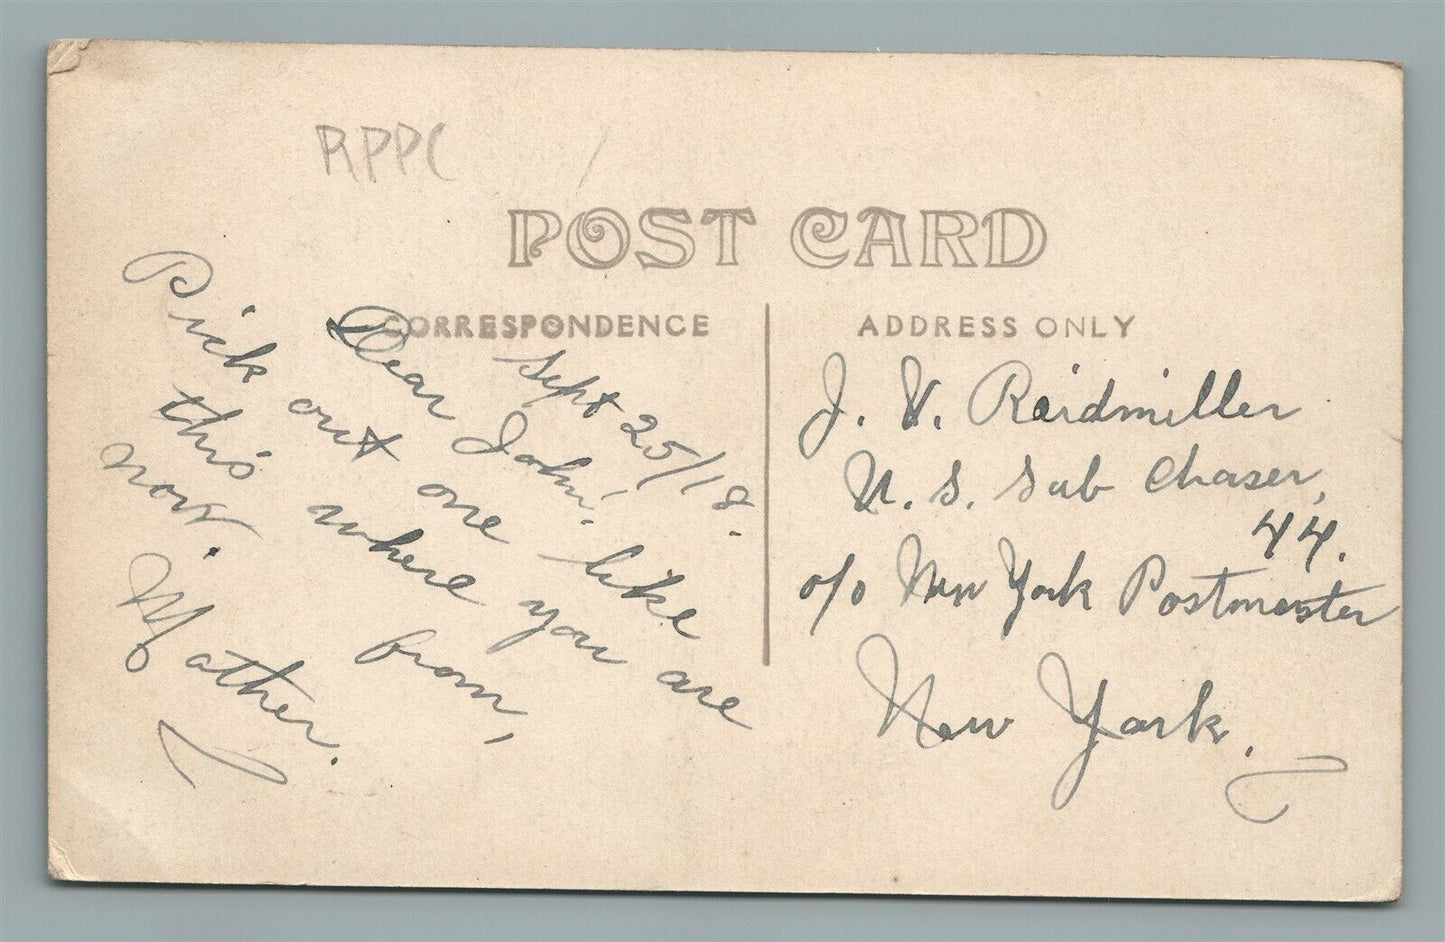 RPPC
POST CARD
CORRESPONDENCE
Sept 25/18.
Dear John!
Pick out one like
this where you are
now.
from,
Mother.
ADDRESS ONLY
J. V. Reidmiller
U. S. Sub Chaser,
44.
c/o New York Postmaster
New York.